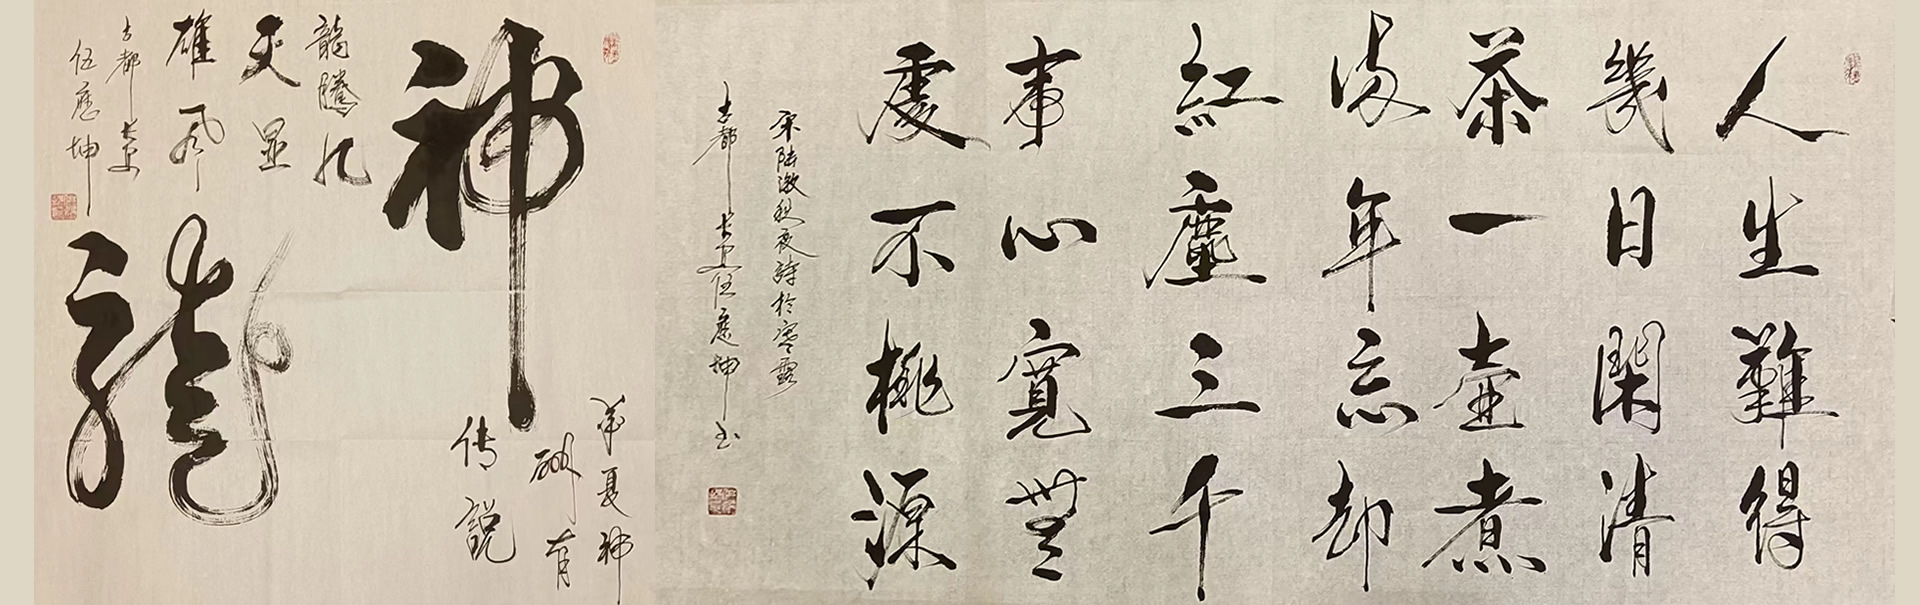 人生難得
幾日閑清
茶一壺煮
流年忘却
紅塵三千
事心寬無
處不桃源
秋夜詩於寒露
古都長安伍應坤书
神龍
華夏神
州有
传説
龍騰九
天显
雄风
古都長安
伍應坤